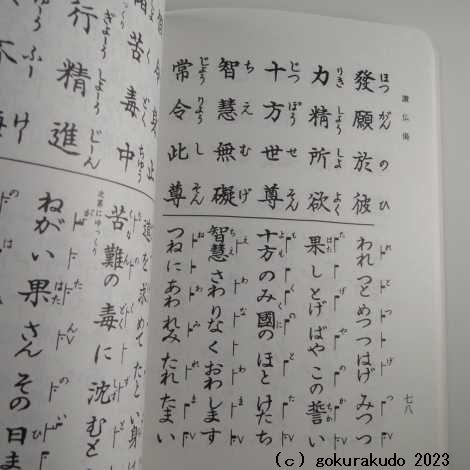 讃仏偈
發願於彼
力精所欲
十方世尊
智慧無礙
常令此尊
われつとめつつはげみつつ
果しとげばやこの誓い
十方のみ國のほとけたち
智慧さわりなくおわします
つねにあわれみたれたまい
七八
令身止
苦毒中
行精進
不
道を求めてたとい身
苦難の毒に沈むと
ねがい果さんその日ま
(c) gokurakudo 2023